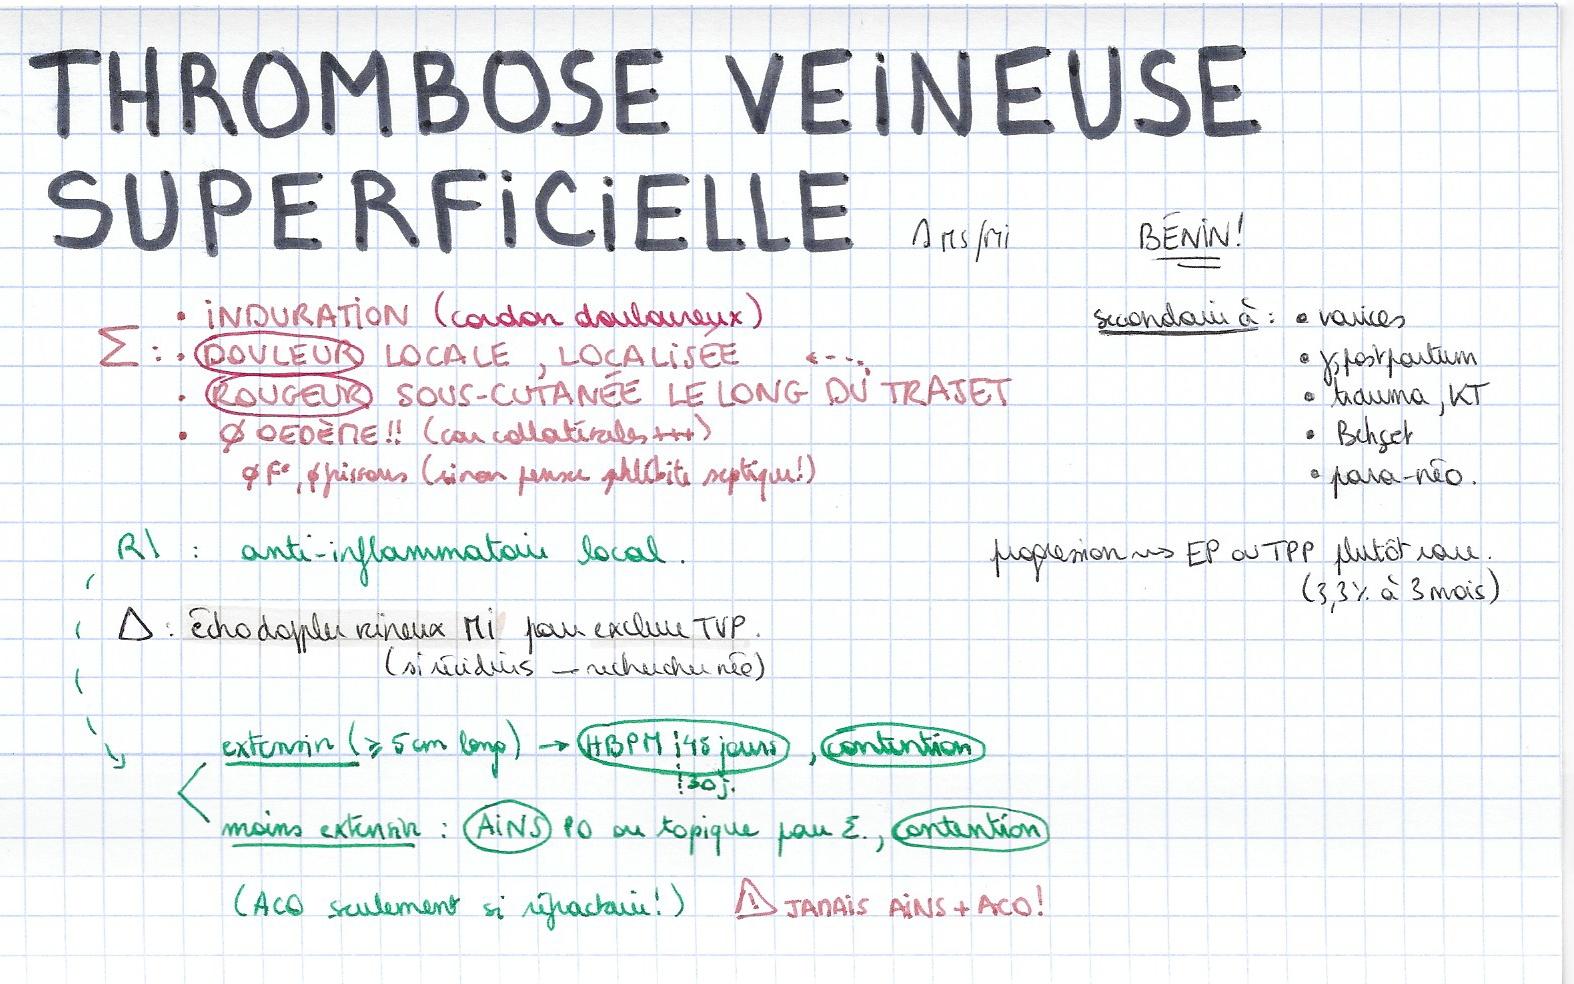 THROMBOSE VEINEUSE
SUPERFICIELLE MS/Mi BÉNIN!
• INDURATION (cordon douloureux)
Σ : • DOULEUR LOCALE, LOCALISÉE
• ROUGEUR SOUS-CUTANÉE LE LONG DU TRAJET
• Ø OEDÈME!! (car collatérales +++)
Ø F°, Ø frissons (sinon penser phlébite septique!)
secondaire à : • varices
• postpartum
• trauma, KT
• Behçet
• para-néo.
R/ : anti-inflammatoire local.
progression ~> EP ou TPP plutôt rare.
(3,3% à 3 mois)
Δ : échodoppler veineux Mi pour exclure TVP.
(si récidives → rechercher néo)
extensif (≥ 5 cm long) → HBPM 45 jours, contention
30j.
moins extensif : AiNS PO ou topique pour Σ., contention
(ACO seulement si réfractaire!) ⚠ JAMAIS AiNS + ACO!